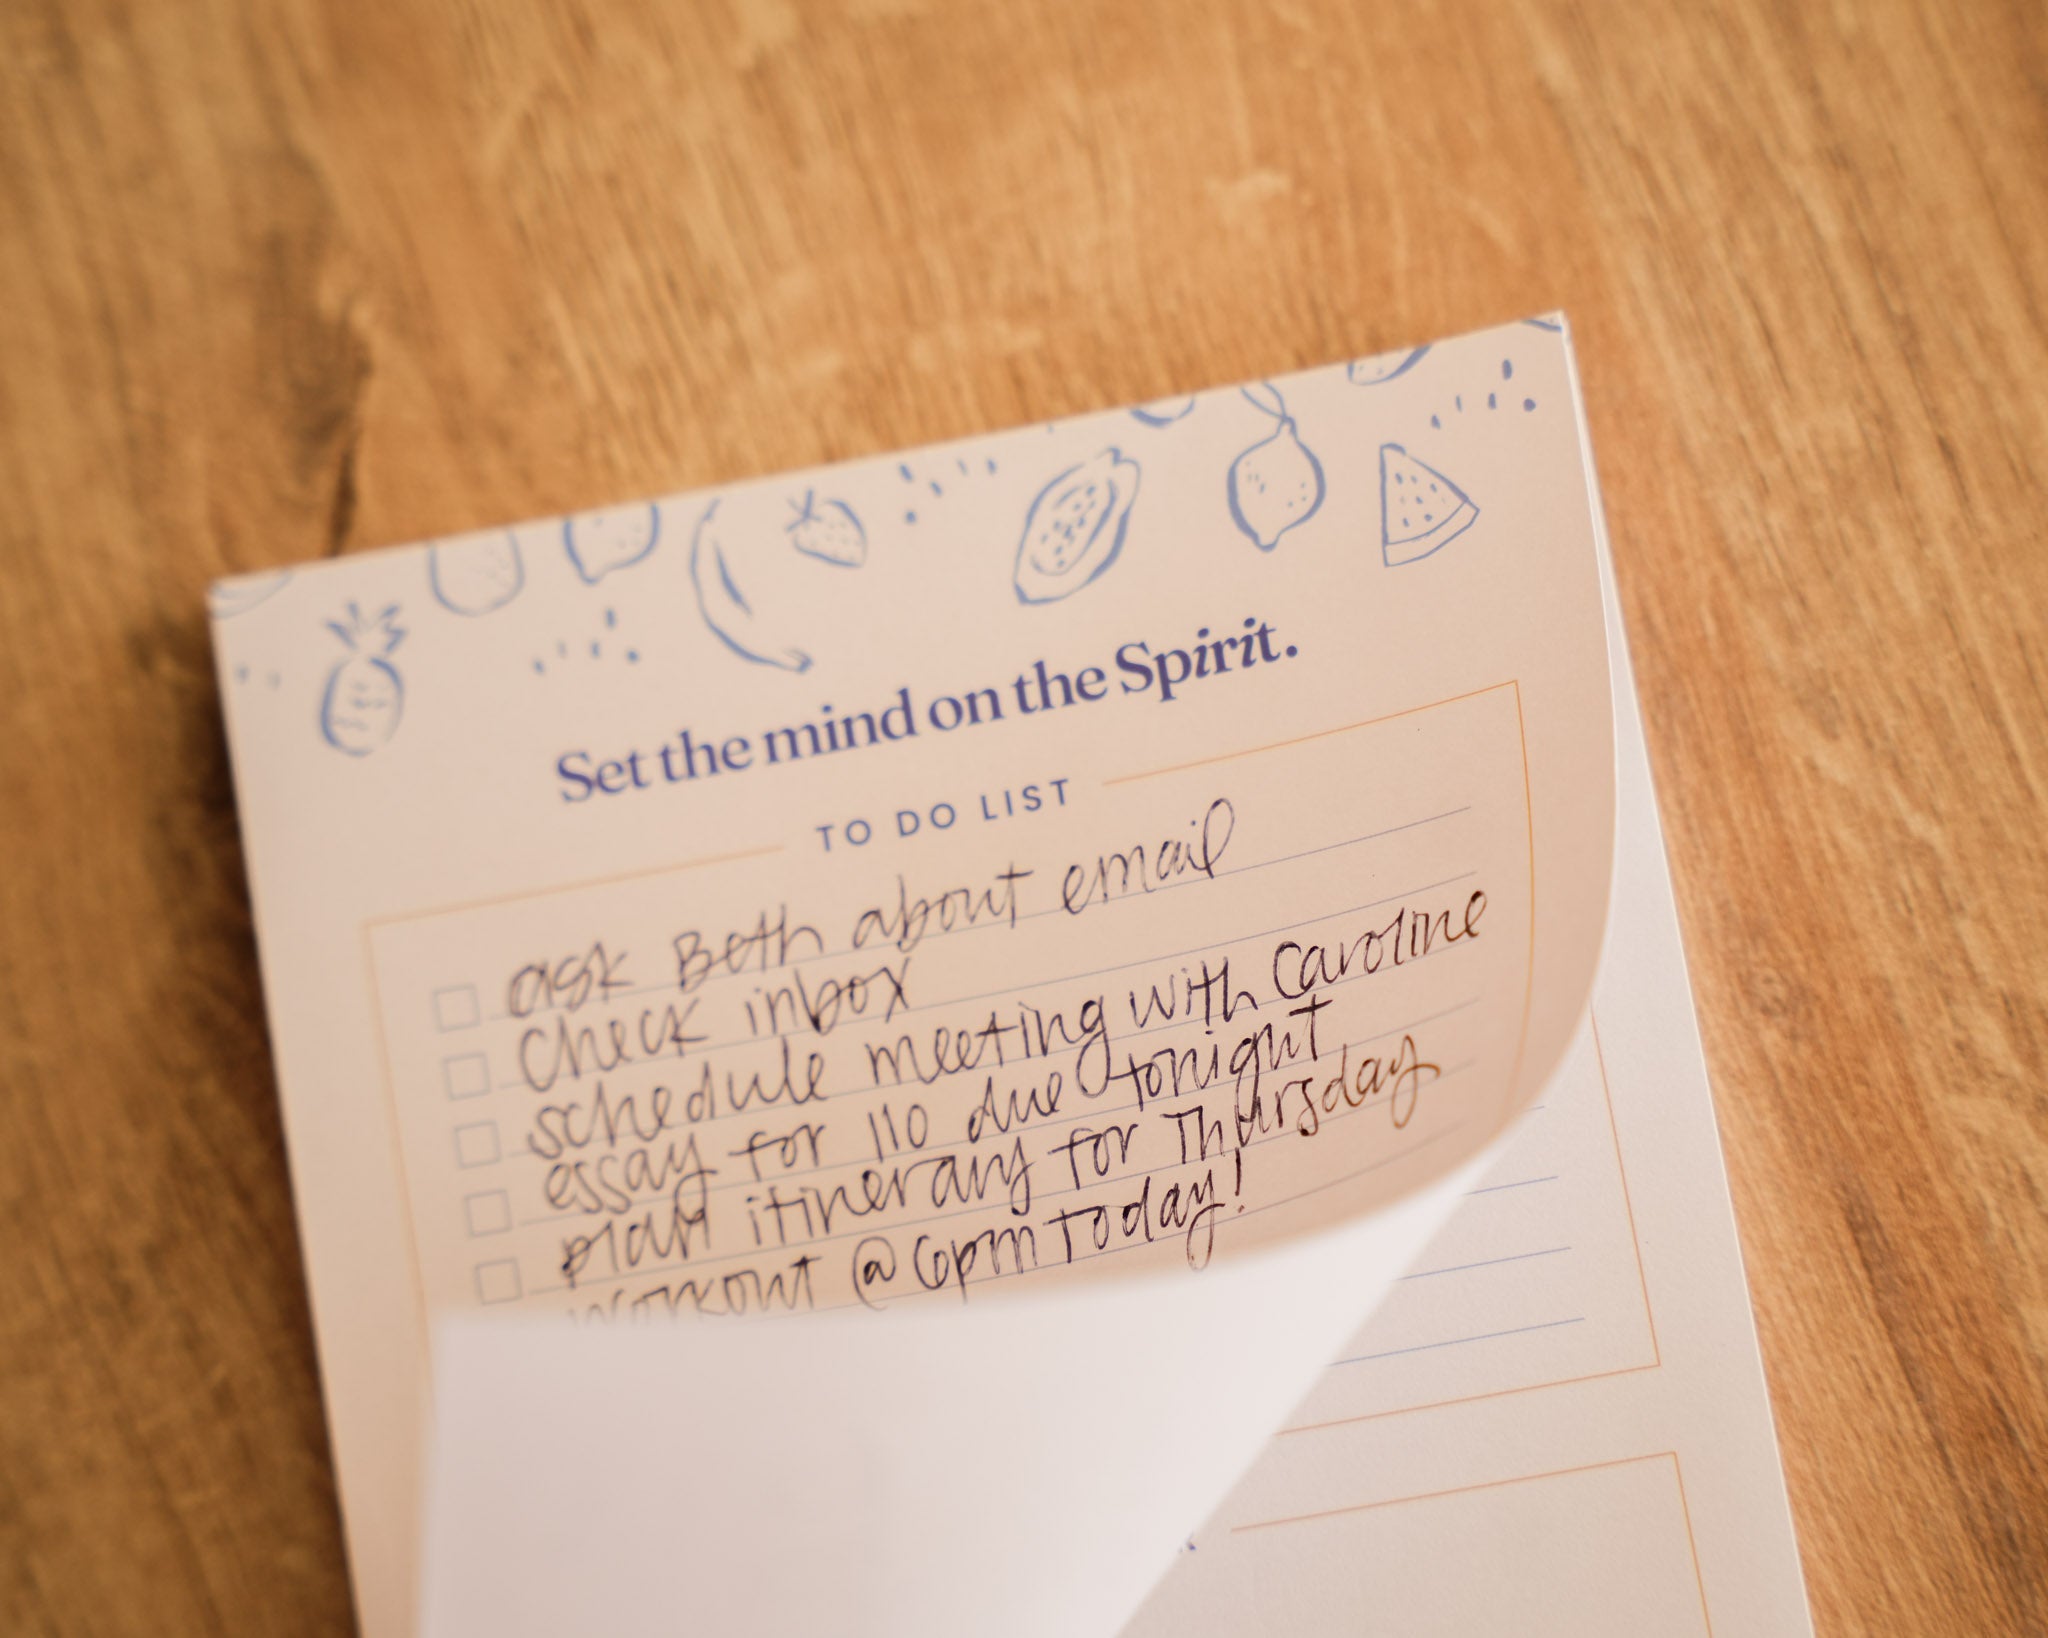 Set the mind on the Spirit.
TO DO LIST
ask Beth about email
Check inbox
schedule meeting with Caroline
essay for 110 due tonight
plan itinerary for Thursday
workout @ 6pm today!